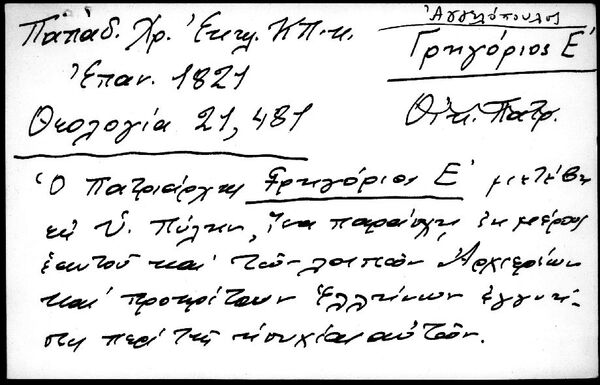 Ἀγγελόπουλος
Παπαδ. Χρ. Ἐκκλ. ΚΠ-κ.
Γρηγόριος Ε΄
Ἐπαν. 1821
Θεολογία 21, 481
Οἰκ. Πατρ.
Ὁ Πατριάρχης Γρηγόριος Ε΄ μετέβη
εἰς Ὑ. Πύλην, ἵνα παράσχῃ ἐκ μέρους
ἑαυτοῦ καὶ τῶν λοιπῶν Ἀρχιερέων
καὶ προκρίτων Ἑλλήνων ἐγγυή-
σεις περὶ τῆς ἡσυχίας αὐτῶν.